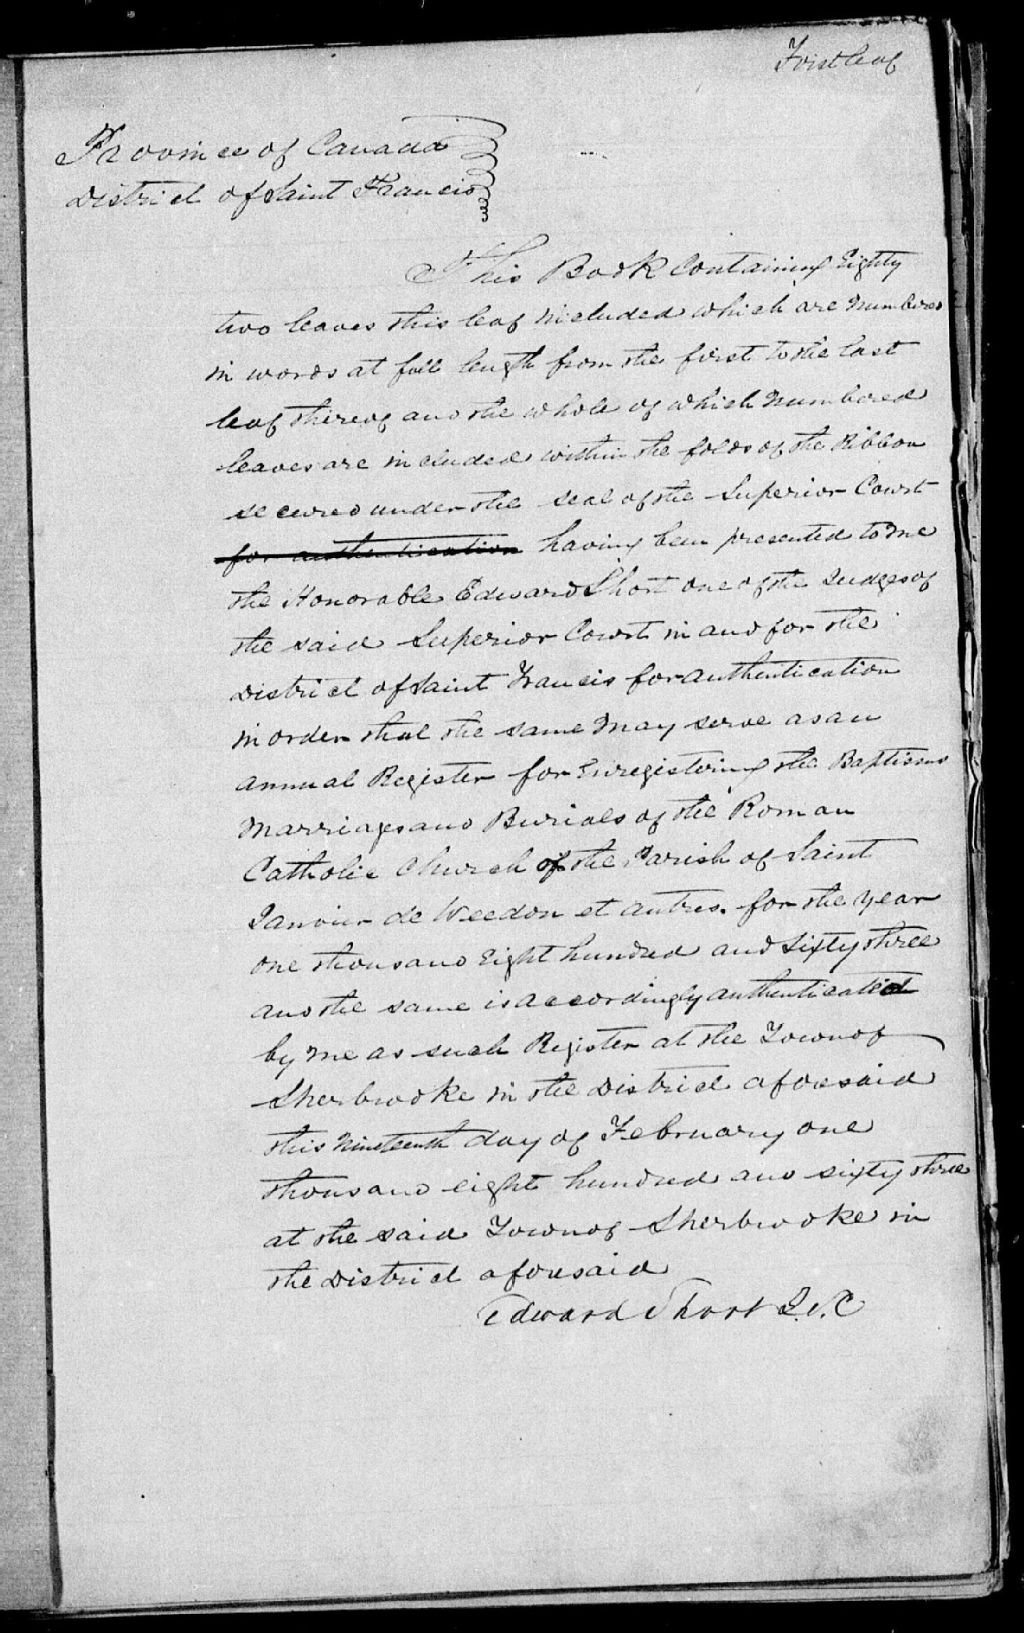 First leaf
Province of Canada
District of Saint Francis
This Book Containing Eighty
two leaves this leaf included which are Numbered
in words at full length from the first to the last
leaf thereof and the whole of which Numbered
leaves are included within the folds of the Ribbon
secured under the seal of the Superior Court
for authentication having been presented to me
the Honorable Edward Short one of the Judges of
the said Superior Court in and for the
District of Saint Francis for authentication
in order that the same may serve as an
annual Register for Enregistering the Baptisms
Marriages and Burials of the Roman
Catholic Church of the Parish of Saint
Janvier de Weedon et autres. for the year
one thousand Eight hundred and Sixty three
and the same is accordingly authenticated
by me as such Register at the Town of
Sherbrooke in the District aforesaid
this Nineteenth day of February one
thousand eight hundred and sixty three
at the said Town of Sherbrooke in
the District aforesaid
Edward Short J.S.C